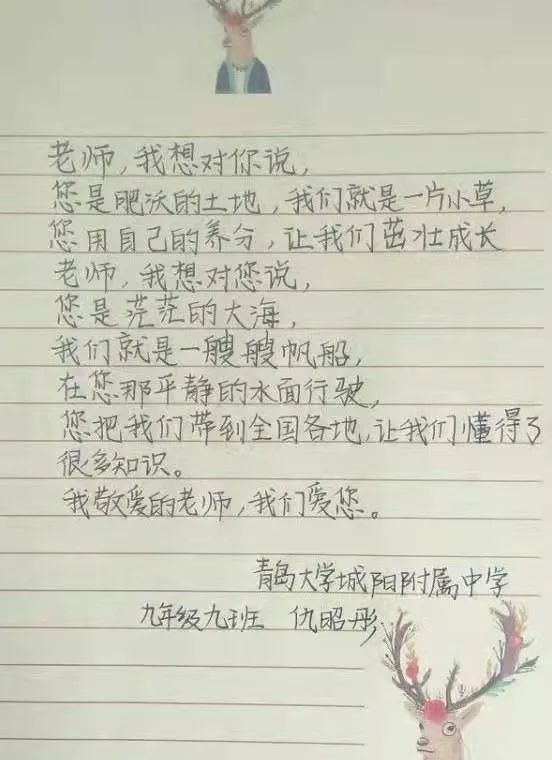 老师,我想对你说,
您是肥沃的土地,我们就是一片小草,
您用自己的养分,让我们茁壮成长
老师,我想对您说,
您是茫茫的大海,
我们就是一艘艘帆船,
在您那平静的水面行驶,
您把我们带到全国各地,让我们懂得了
很多知识。
我敬爱的老师,我们爱您。
青岛大学城阳附属中学
九年级九班 仇昭彤